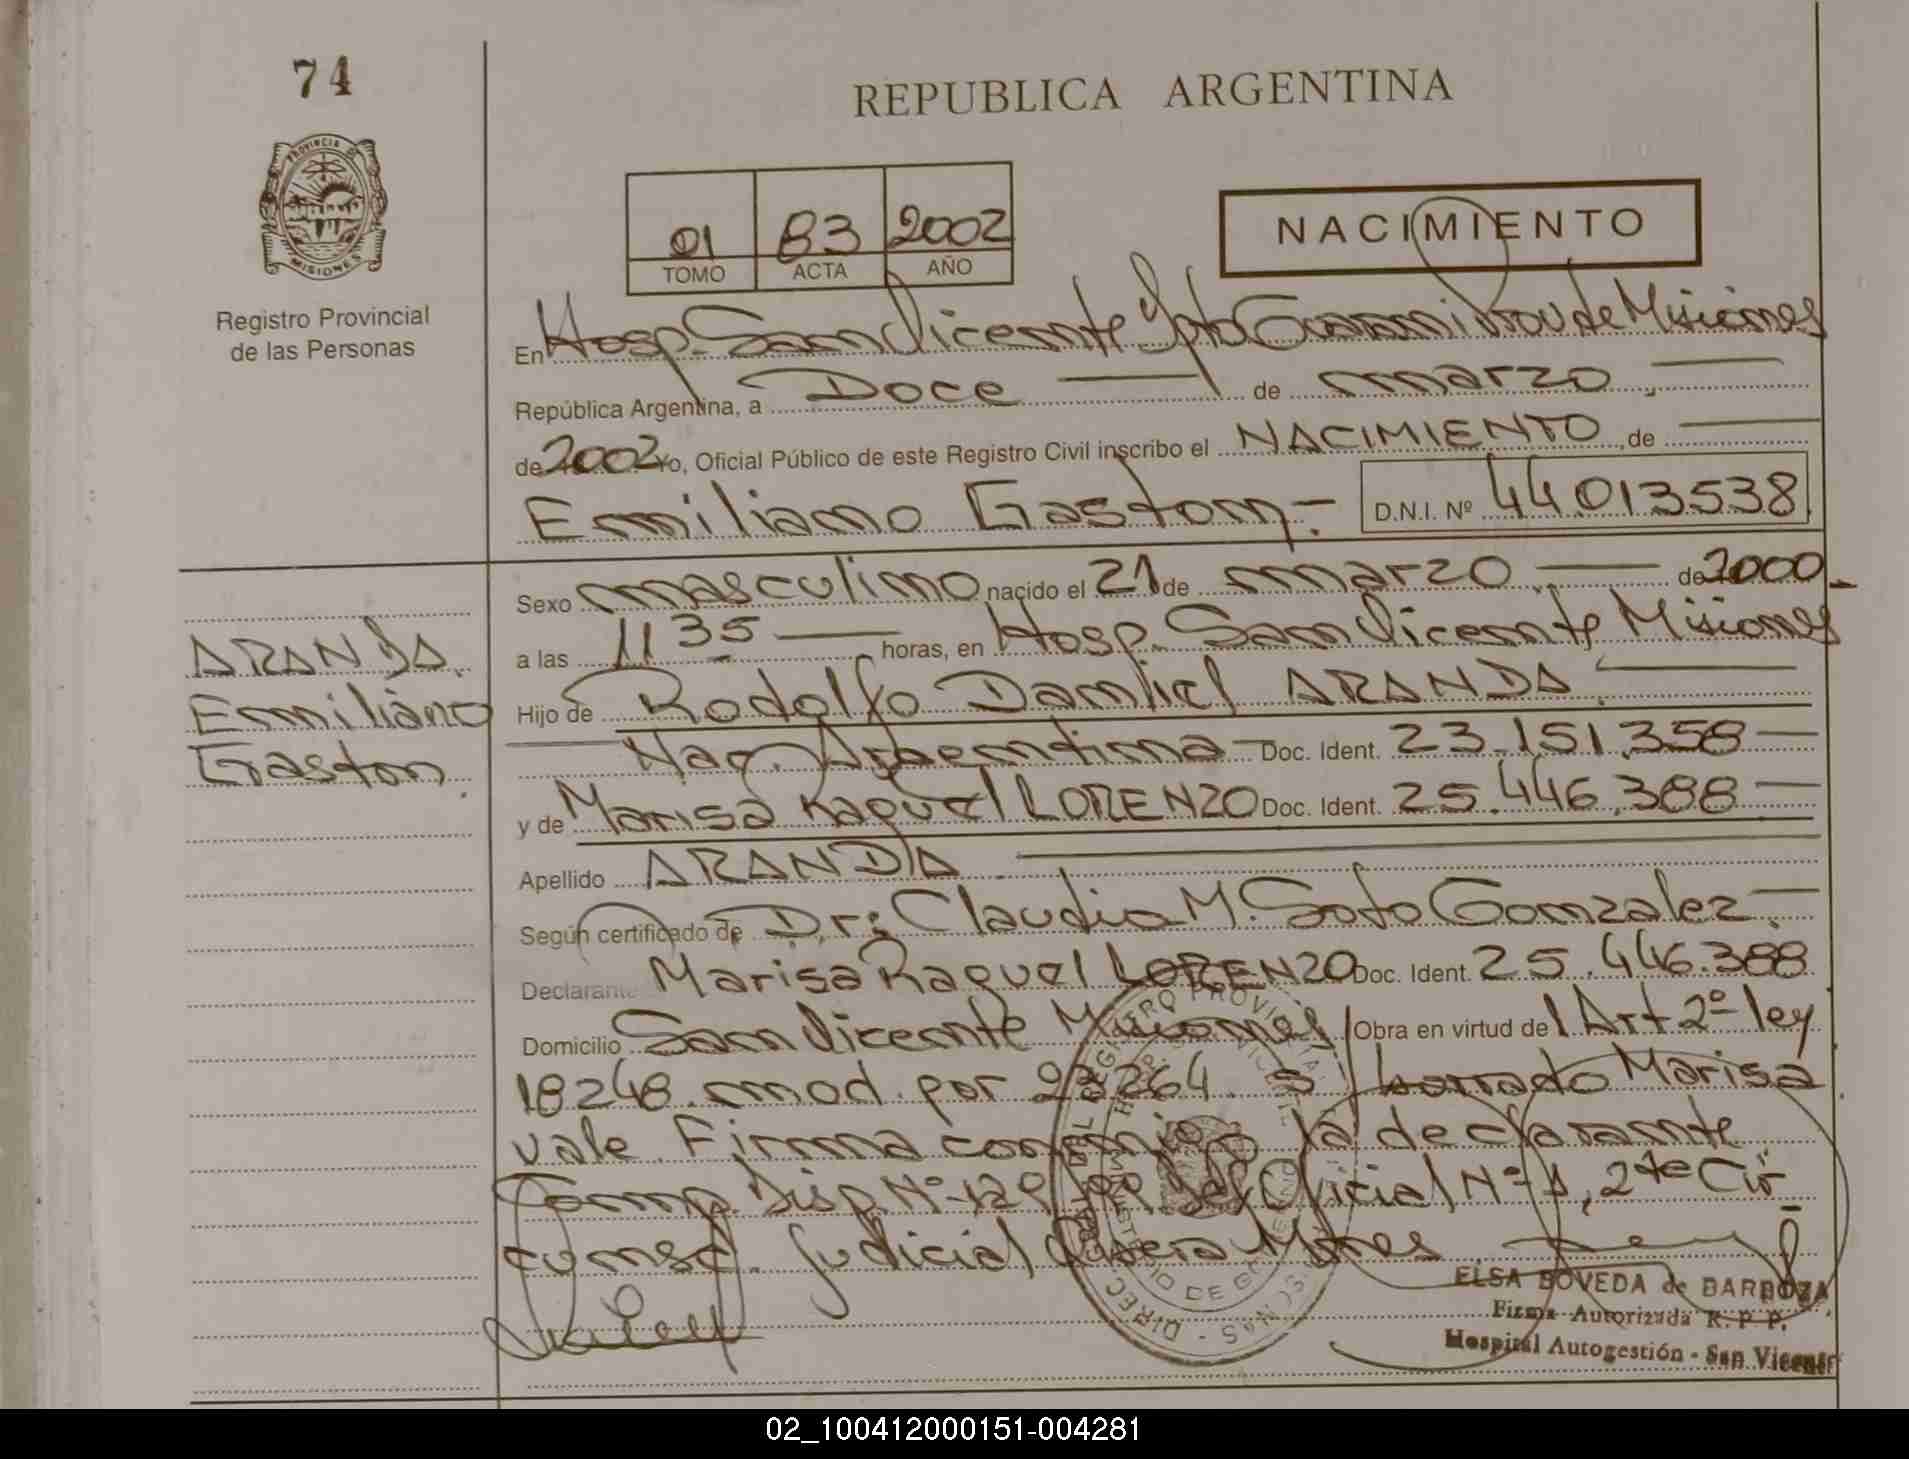 74
REPUBLICA ARGENTINA
PROVINCIA DE
MISIONES
Registro Provincial
de las Personas
01 83 2002
TOMO ACTA AÑO
NACIMIENTO
En Hosp. San Vicente Dpto Guarani Prov de Misiones
República Argentina, a Doce de marzo
de 2002 Yo, Oficial Público de este Registro Civil inscribo el NACIMIENTO, de
Emiliano Gaston.- D.N.I. Nº 44013538
Sexo masculino nacido el 21 de marzo de 2000
a las 11 35 horas, en Hosp. San Vicente Misiones
ARANDA
Emiliano
Gaston
Hijo de Rodolfo Daniel ARANDA
Nac. Argentina Doc. Ident. 23.151.358
y de Marisa Raquel LORENZO Doc. Ident. 25.446.388
Apellido ARANDA
Según certificado de Dr: Claudia M. Soto Gonzalez
Declarante Marisa Raquel LORENZO Doc. Ident. 25.446.388
Domicilio San Vicente Misiones Obra en virtud de l Art 2º ley
18248 mod. por 23264. s/ borrado Marisa
vale. Firma conmigo la declarante
Comp. Disp. Nº 120 Oficial Nº 1, 2da Cir
cunsc. Judicial Obera Mnes
ELSA BOVEDA de BARBOZA
Firma Autorizada R. P. P.
Hospital Autogestión - San Vicente
02_100412000151-004281